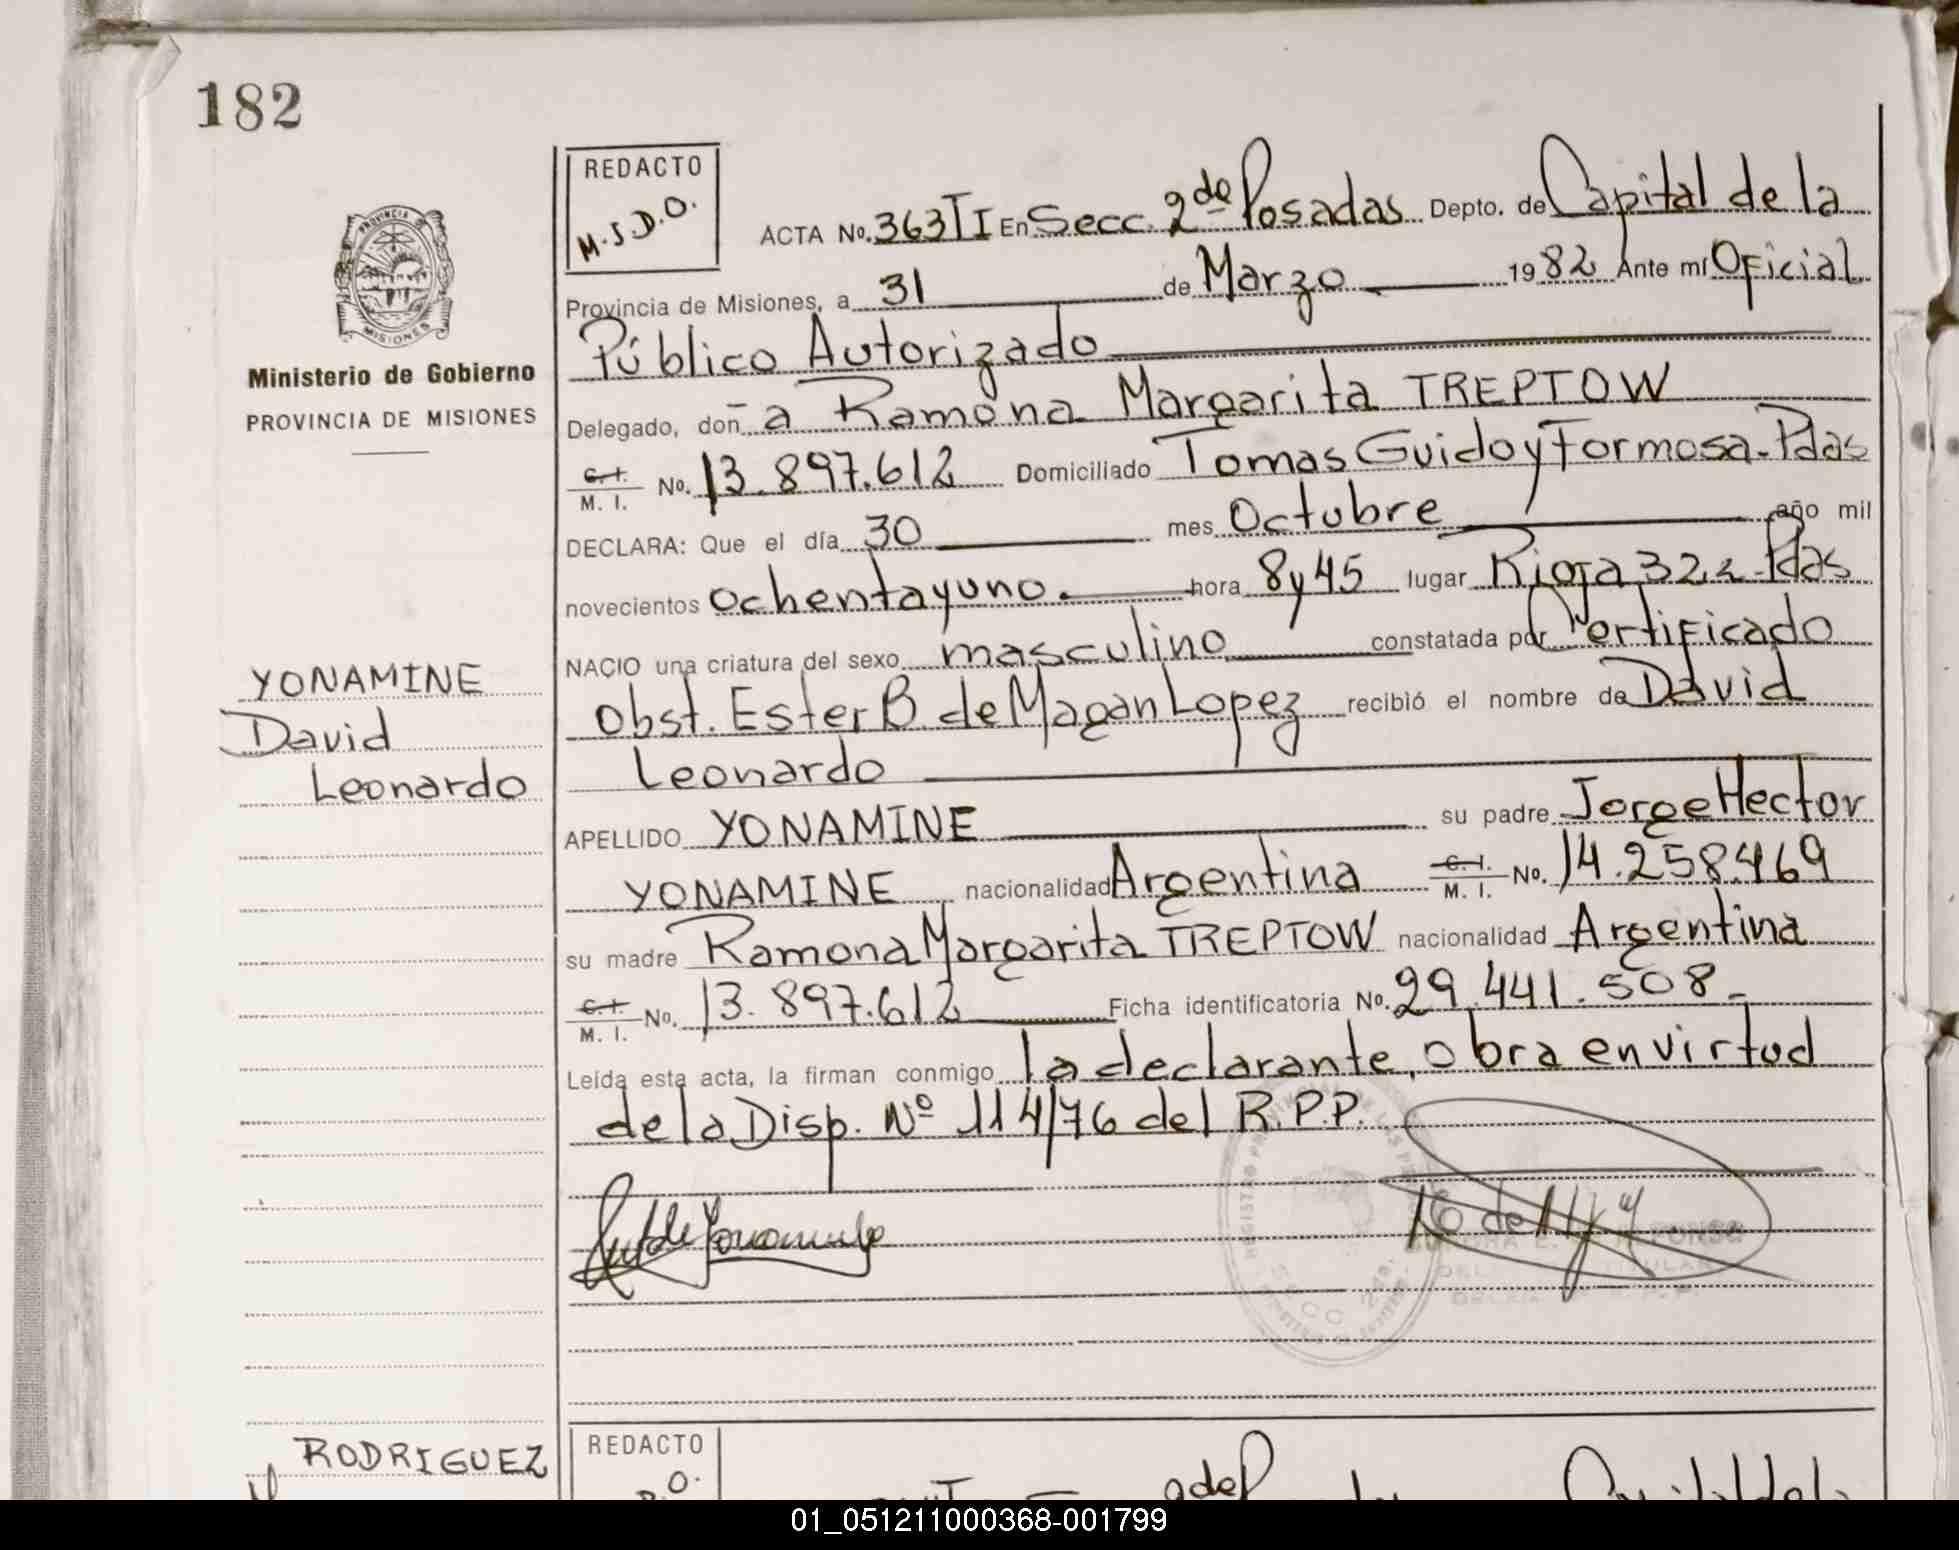 182
REDACTO
M.S.D.O.
ACTA No. 363 TI En Secc. 2da Posadas Depto. de Capital de la
Provincia de Misiones, a 31 de Marzo 1982 Ante mí Oficial
Público Autorizado
Delegado, doña Ramona Margarita TREPTOW
C. I. M. I. No. 13.897.612 Domiciliado Tomas Guido y Formosa. Pdas
DECLARA: Que el día 30 mes Octubre año mil
novecientos ochentayuno. hora 8y45 lugar Rioja 322 Pdas
NACIO una criatura del sexo masculino constatada por Certificado
Obst. Ester B de Magan Lopez recibió el nombre de David
Leonardo
APELLIDO YONAMINE su padre Jorge Hector
YONAMINE nacionalidad Argentina C. I. M. I. No. 14.258.469
su madre Ramona Margarita TREPTOW nacionalidad Argentina
C. I. M. I. No. 13.897.612 Ficha identificatoria No. 29.441.508-
Leída esta acta, la firman conmigo la declarante, obra en virtud
de la Disp. Nº 114/76 del R.P.P.
PROVINCIA DE
MISIONES
Ministerio de Gobierno
PROVINCIA DE MISIONES
YONAMINE
David
Leonardo
RODRIGUEZ
REDACTO
01_051211000368-001799